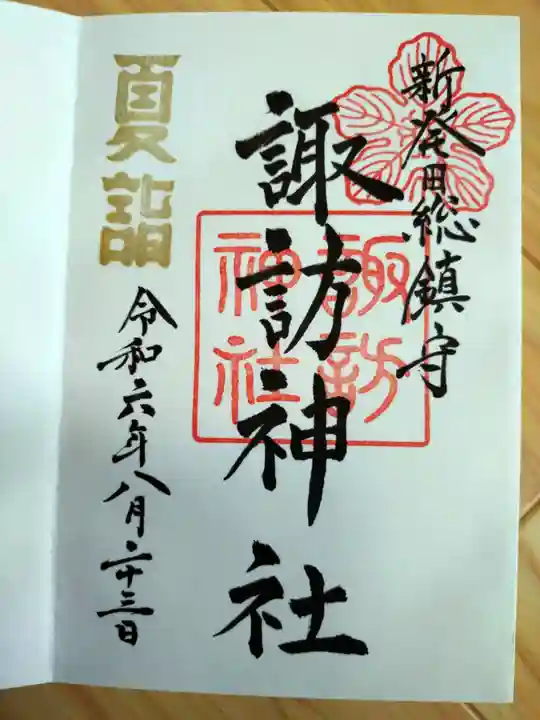 新発田総鎮守
諏訪神社
諏訪
神社
夏詣
令和六年八月二十三日